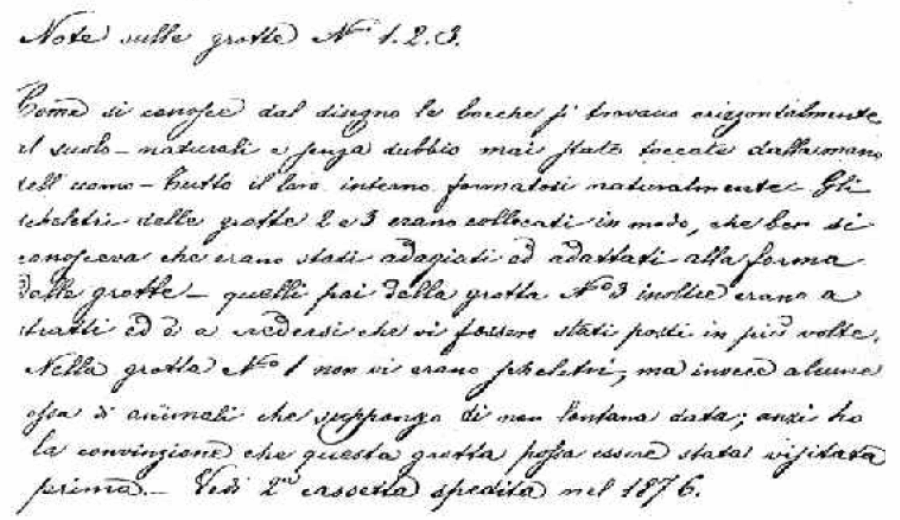 Note sulle grotte Nⁱ 1. 2. 3.
Come si conosce dal disegno le bocche si trovano orizzontalmente
al suolo – naturali e senza dubbio mai state toccate dalla mano
dell'uomo – Tutto il loro interno formatosi naturalmente – Gli
scheletri delle grotte 2 e 3 erano collocati in modo, che ben si
conosceva che erano stati adagiati ed adattati alla forma
delle grotte – quelli poi della grotta Nº 3 inoltre erano a
stratti ed è a credersi che vi fossero stati posti in più volte.
Nella grotta Nº 1 non vi erano scheletri, ma invece alcune
ossa di animali che suppongo di non lontana data; anzi ho
la convinzione che questa grotta possa essere stata visitata
prima. – Vedi 2ª cassetta spedita nel 1876.